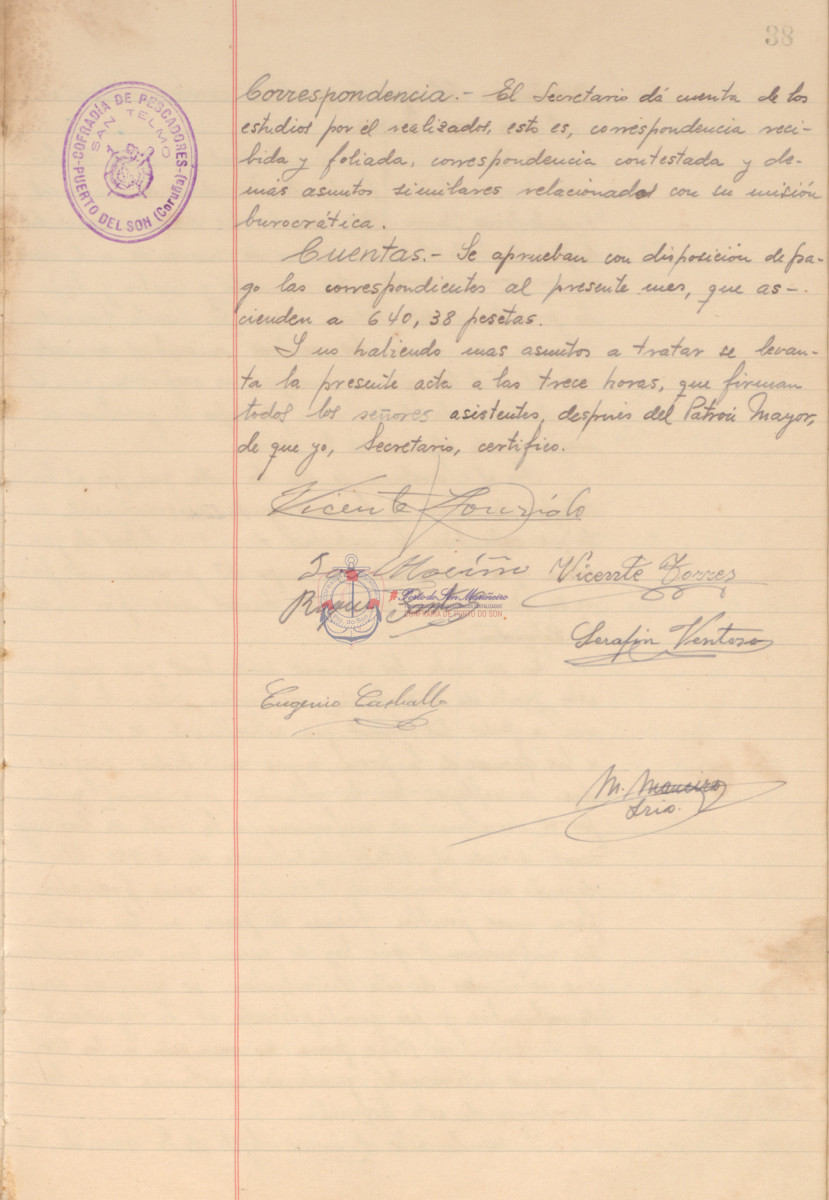 38
COFRADÍA DE PESCADORES
SAN TELMO
PUERTO DEL SON (Coruña)
Correspondencia.- El Secretario dá cuenta de los
estudios por él realizados, esto es, correspondencia reci-
bida y foliada, correspondencia contestada y de-
más asuntos similares relacionados con su misión
burocrática.
Cuentas.- Se aprueban con disposición de pa-
go las correspondientes al presente mes, que as-
cienden a 640,38 pesetas.
Y no habiendo mas asuntos a tratar se levan-
ta la presente acta a las trece horas, que firman
todos los señores asistentes, después del Patrón Mayor,
de que yo, Secretario, certifico.
Vicente
Vicente Torres
Porto do Son Mariñeiro
COFRARÍA DE PORTO DO SON
Serafin Ventoso
Eugenio Carballo
M. Maneiro
Srio.